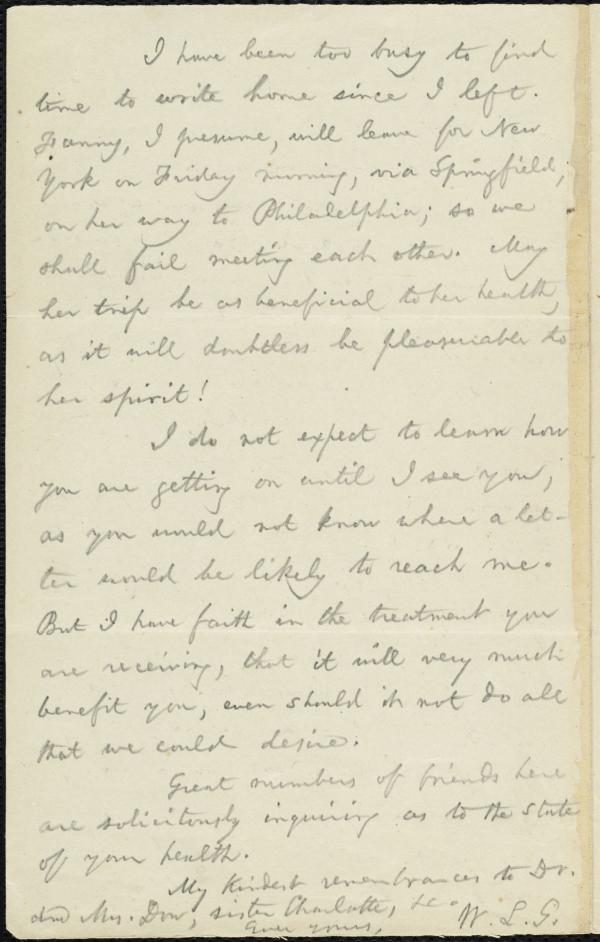 I have been too busy to find
time to write home since I left.
Fanny, I presume, will leave for New
York on Friday morning, via Springfield,
on her way to Philadelphia; so we
shall fail meeting each other. May
her trip be as beneficial to her health,
as it will doubtless be pleasurable to
her spirit!
I do not expect to learn how
you are getting on until I see you,
as you would not know where a let-
ter would be likely to reach me.
But I have faith in the treatment you
are receiving, that it will very much
benefit you, even should it not do all
that we could desire.
Great numbers of friends here
are solicitously inquiring as to the state
of your health.
My kindest remembrances to Dr.
and Mrs. Dow, sister Charlotte, &c.
Ever yours, W. L. G.